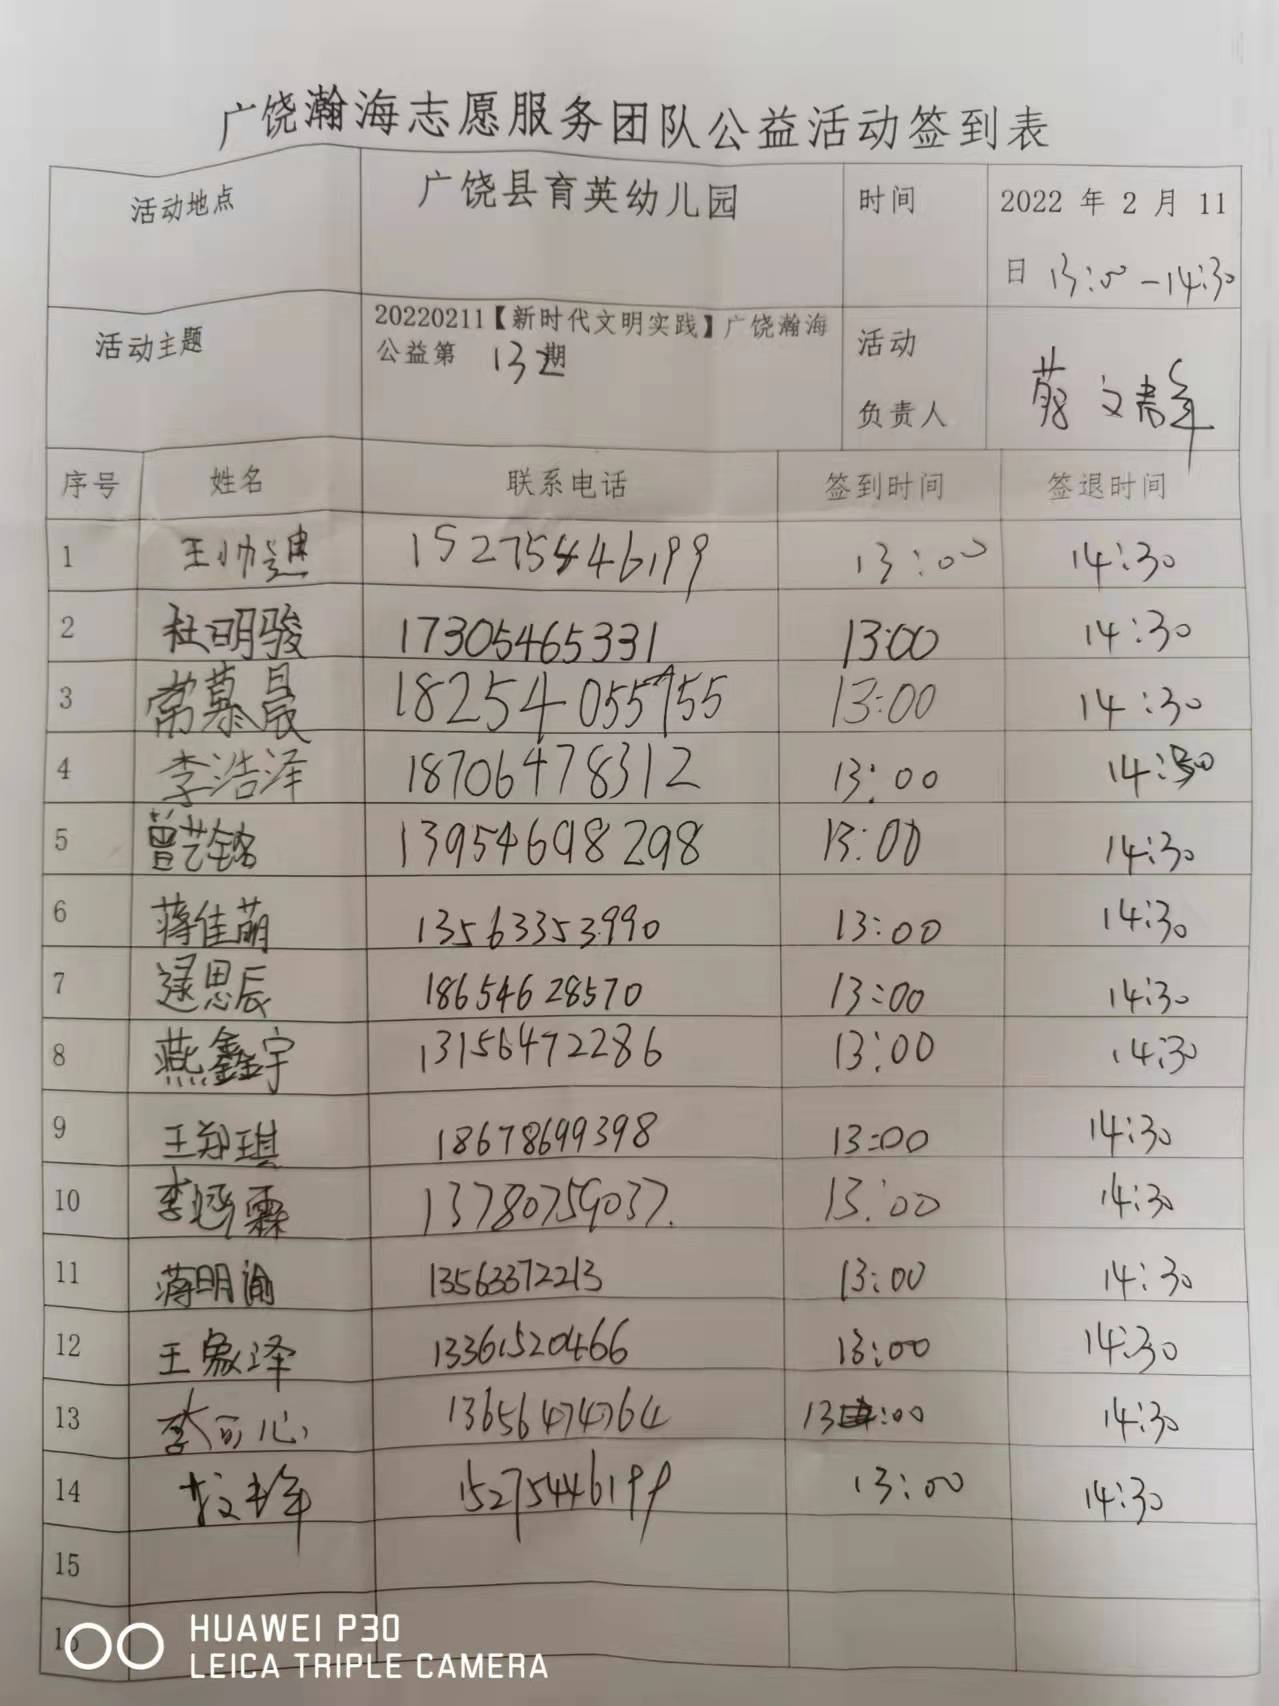 广饶瀚海志愿服务团队公益活动签到表
活动地点 广饶县育英幼儿园 时间 2022 年 2 月 11
日 13:00-14:30
活动主题 20220211【新时代文明实践】广饶瀚海
公益第 13 期 活动
负责人
序号 姓名 联系电话 签到时间 签退时间
1 王帅 15275446199 13:00 14:30
2 杜明骏 17305465331 13:00 14:30
3 常慕晨 18254055755 13:00 14:30
4 李浩泽 18706478312 13:00 14:30
5 曾艺铭 13954698298 13:00 14:30
6 蒋佳萌 13563353990 13:00 14:30
7 逯思辰 18654628570 13:00 14:30
8 燕鑫宇 13156472286 13:00 14:30
9 王郑琪 18678699398 13:00 14:30
10 李 霖 13780759037. 13:00 14:30
11 蒋明渝 13563372213 13:00 14:30
12 王象泽 13361520466 13:00 14:30
13 李可心 13656474764 13:00 14:30
14 15275446199 13:00 14:30
15
HUAWEI P30
LEICA TRIPLE CAMERA